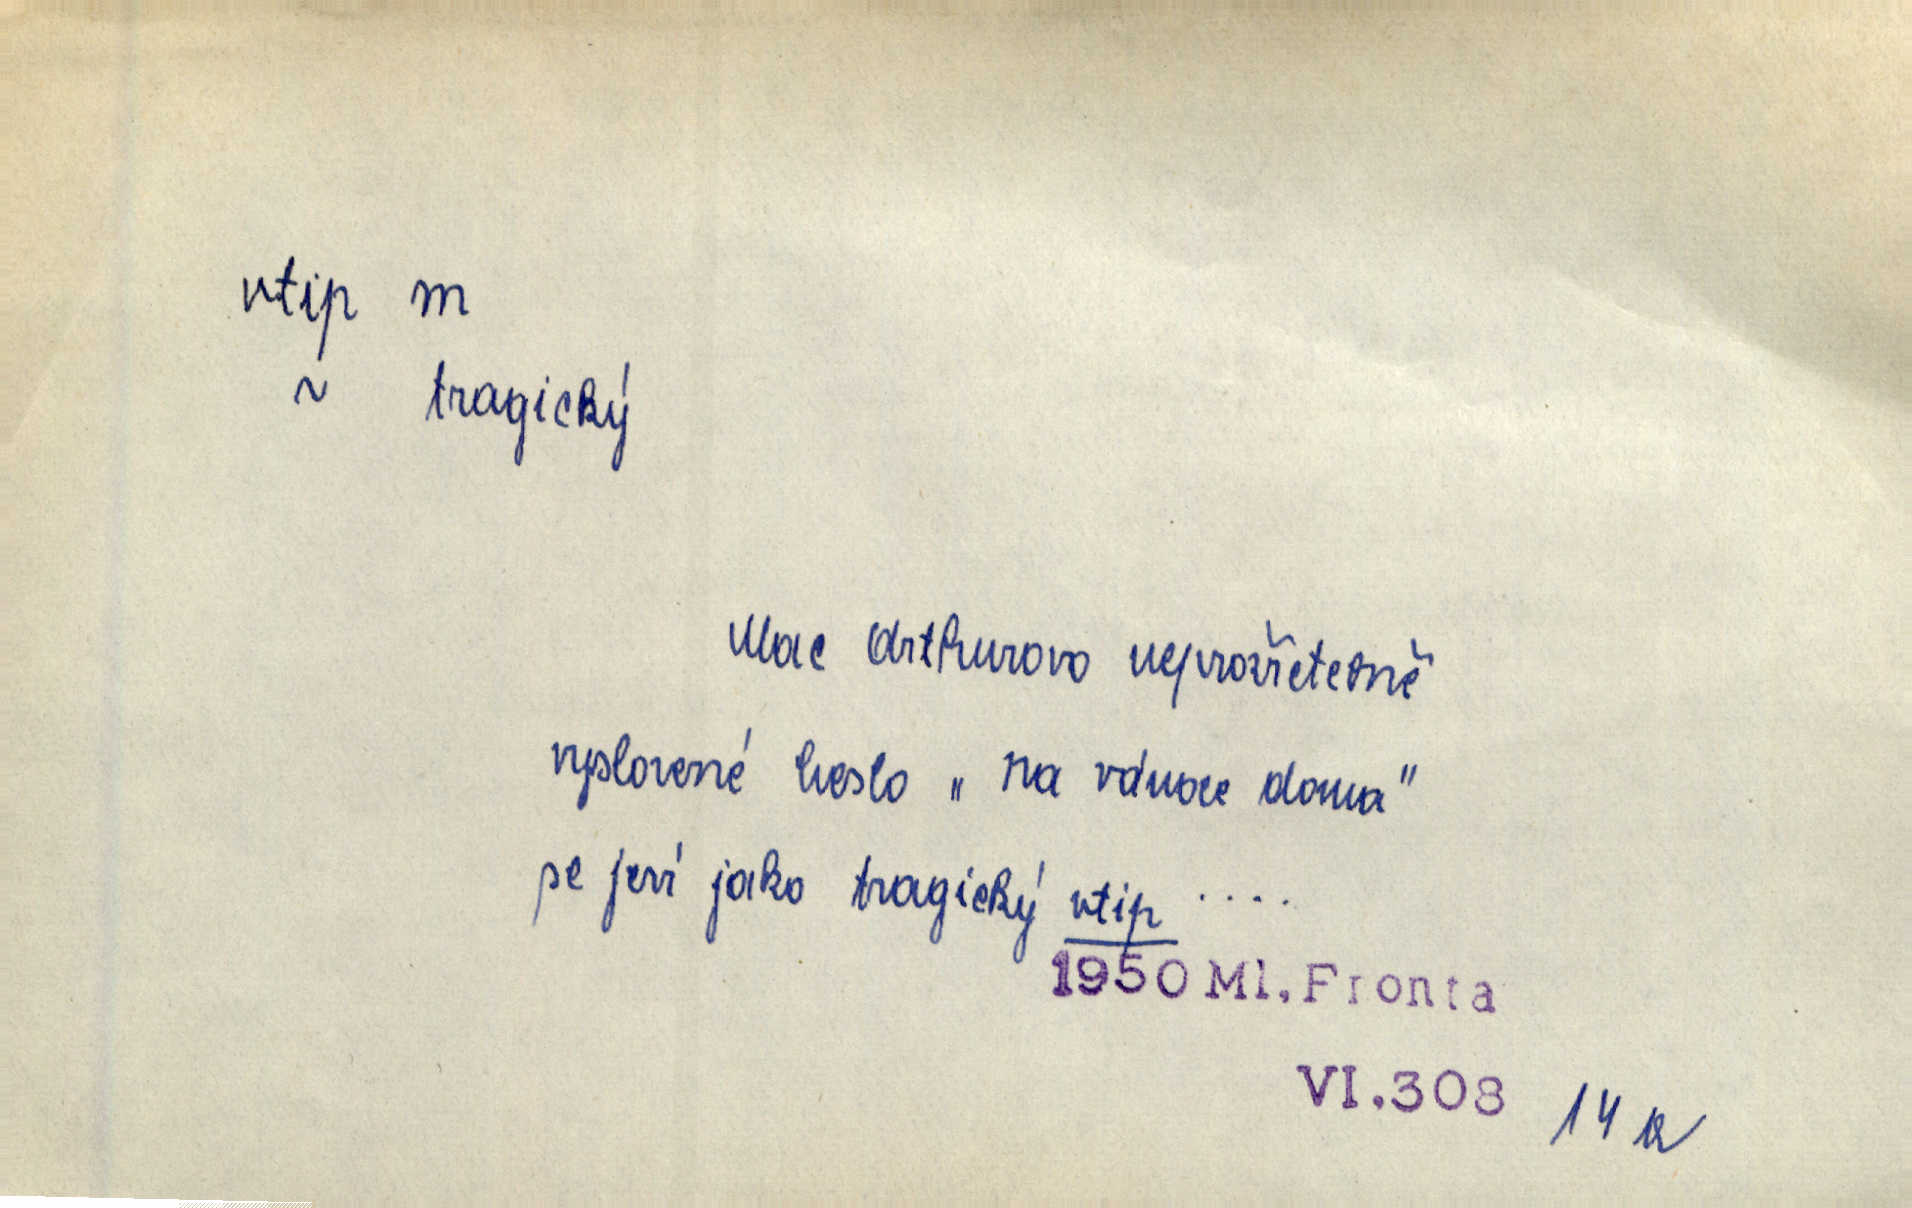 vtip m
~ tragický
Mac Arthurovo neprozřetelně
vyslovené heslo „Na vánoce doma"
se jeví jako tragický vtip ....
1950 Ml. Fronta
VI.308 14